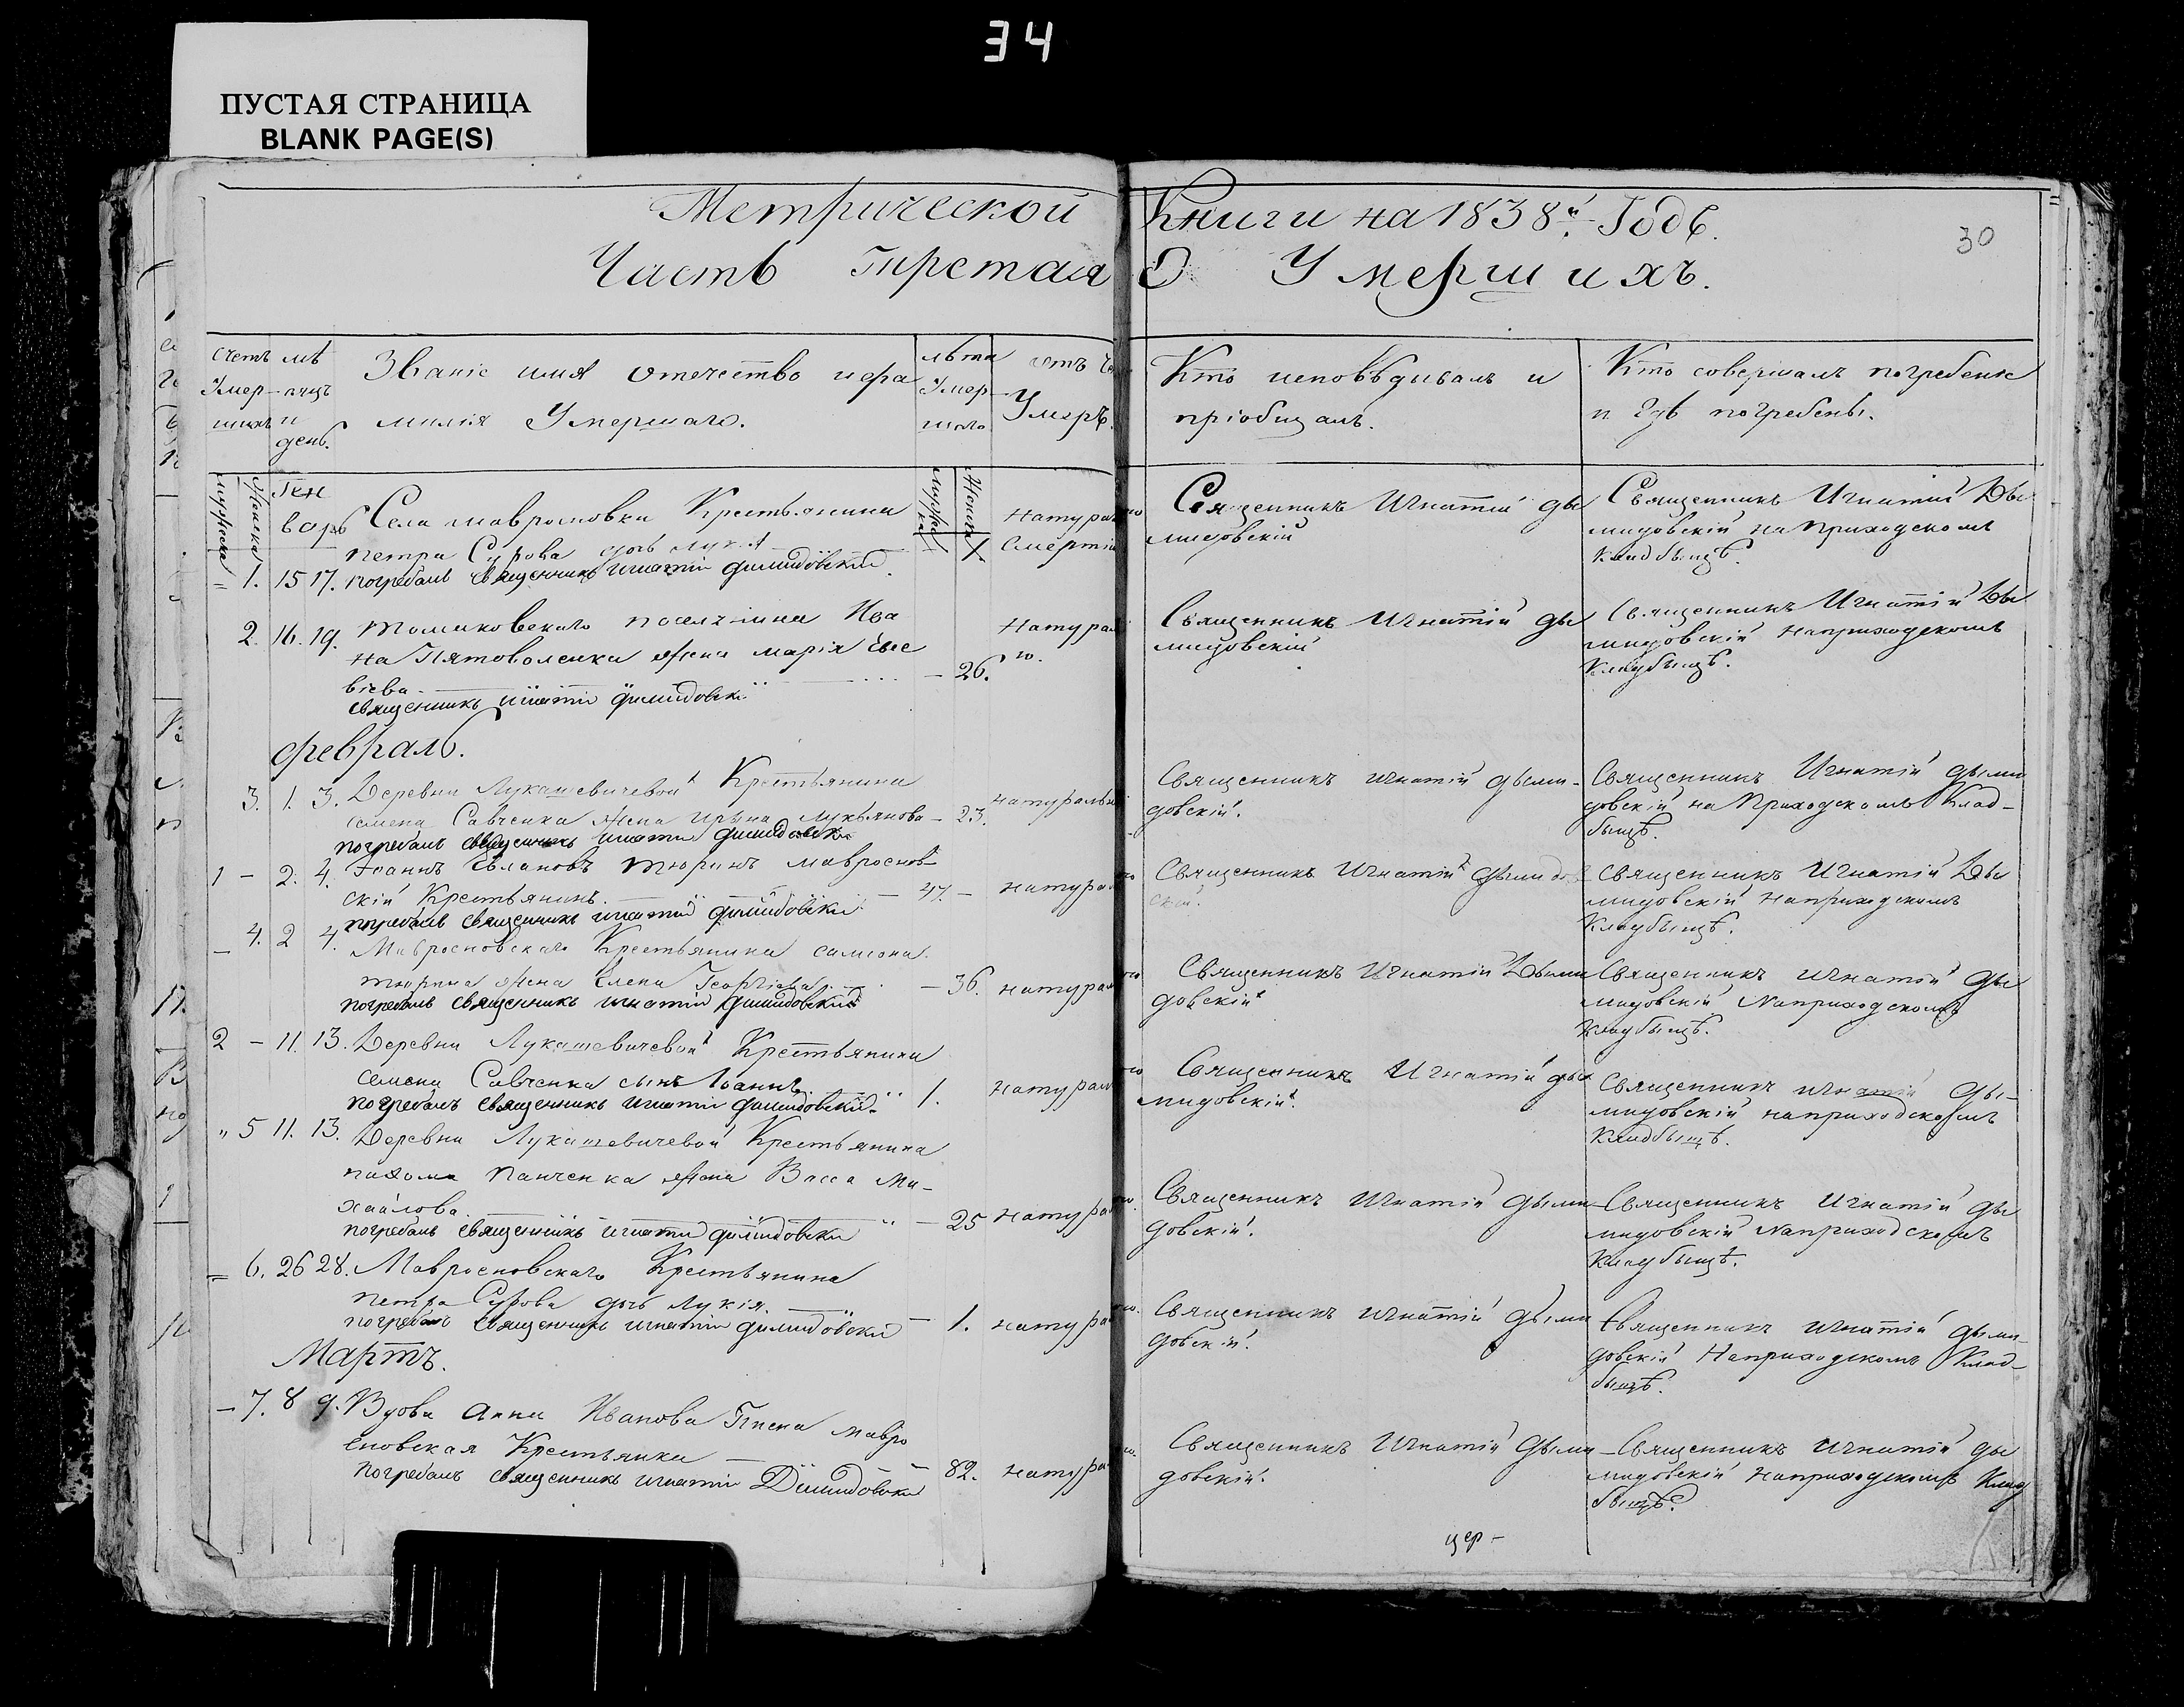 34
ПУСТАЯ СТРАНИЦА
BLANK PAGE(S)
Метрической Книги на 1838й Годъ.
30
Часть третая О Умершихъ.
счетъ Умер-шихъ
мѣ-сяцъ и день.
Званіе имя отечество и фа
милія Умершаго.
лѣта Умер-шаго
отъ че
Умеръ.
Кто исповѣдывалъ и
пріобщалъ.
Кто совершалъ погребеніе
и гдѣ погребены.
мужска
женска
Ген
варь
Села мавросновки Крестьянина
петра Сурова дочь
1. 15 17. погребалъ священникъ игнатій димидовский
Священникъ Игнатій ды
мидовскій
Священникъ Игнатій Ды
мидовскій на приходскомъ
кладбищѣ.
2. 16. 19. томаковскаго поселянина Ива
на Пятоволенка жена марія
вієва - 26.
священникъ игнатій димидовски
Священникъ Игнатій ды
мидовскій
Священникъ Игнатій Ды
мидовскій наприходскомъ
кладбищѣ.
февраль.
3. 1. 3. Деревни Лукашевичевой Крестьянина
семена Савченка жена Ирина лукьянова - 23. натуральн
погребалъ священникъ игнати димидовски
Священникъ игнатій дыми-
довскій.
Священникъ Игнатій дыми
довскій на приходскомъ Клад-
бищѣ.
1 - 2. 4. Іоаннъ тюринъ мавроснов
скій Крестьянинъ. - 47. - натура
погребалъ священникъ игнатий димидовски
Священникъ Игнатій дымидов
скій.
Священникъ Игнатій Ды
мидовскій наприходскомъ
кладбищѣ.
- 4. 2 4. Мавросновскаго Крестьянина самсона
тюрина жена Елена Георгіева - 36. натурал
погребалъ священникъ игнатій димидовский
Священникъ Игнатій Дыми
довскій
Священникъ игнатій ды
мидовскій наприходскомъ
кладбищѣ.
2 - 11. 13. Деревни Лукашевичевой Крестьянина
семена Савченка сынъ Іоаннъ 1. натурал
погребалъ священникъ игнатій димидовский
Священникъ Игнатій ды
мидовскій.
Священникъ игнатій ды-
мидовскій наприходскомъ
кладбищѣ.
" 5 11. 13. Деревни Лукашевичевой Крестьянина
пахома панченка жена Васса ми-
хайлова. - 25 натура
погребалъ священникъ игнати димидовски
Священникъ Игнатій дыми
довскій.
Священникъ Игнатій ды
мидовскій наприходскомъ
кладбищѣ.
= 6. 26 28. Мавросновскаго Крестьянина
петра Сурова дочь лукія. - 1. натура
погребалъ священникъ игнатіи димидовски
Священникъ игнатій дыми
довскій.
Священникъ игнатій дыми-
довскій Наприходскомъ Клад-
бищѣ.
Мартъ.
- 7. 8 9. Вдова Анна Иванова мавро
сновская Крестьянка - 82. натура
погребалъ священникъ игнатіи Димидовски
Священникъ Игнатій дыми
довскій.
Священникъ игнатій ды
мидовскій наприходскомъ клад
бищѣ.
цер-